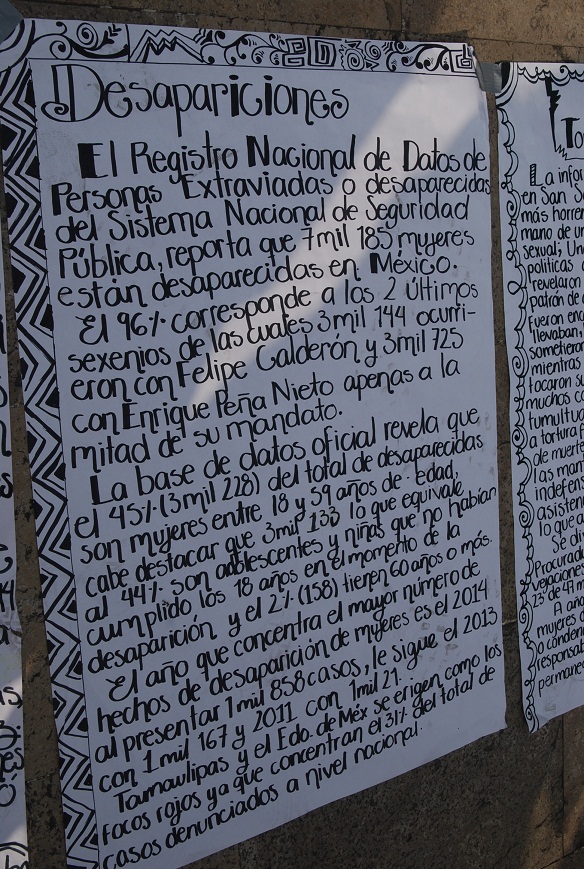 Desapariciones
El Registro Nacional de Datos de
Personas Extraviadas o desaparecidas
del Sistema Nacional de Seguridad
Pública, reporta que 7mil 185 mujeres
están desaparecidas en México.
El 96% corresponde a los 2 últimos
sexenios de las cuales 3mil 144 ocurri-
eron con Felipe Calderón y 3mil 725
con Enrique Peña Nieto apenas a la
mitad de su mandato.
La base de datos oficial revela que
el 45% (3mil 228) del total de desaparecidas
son mujeres entre 18 y 59 años de edad,
cabe destacar que 3mil 133 lo que equivale
al 44% son adolescentes y niñas que no habían
cumplido los 18 años en el momento de la
desaparición y el 2% (158) tienen 60 años o más.
El año que concentra el mayor número de
hechos de desaparición de mujeres es el 2014
al presentar 1mil 858 casos, le sigue el 2013
con 1mil 167 y 2011 con 1mil 21.
Tamaulipas y el Edo. de Méx se erigen como los
focos rojos ya que concentran el 31% del total de
casos denunciados a nivel nacional.
La infor
en San S
más horre
mano de un
sexual; Un
políticas
revelaron
patrón de
Fueron enc
llevaban
sometieron
mientras
tocaron s
muchos co
tumultu
a tortura f
de muerte
las ma
indefens
asisten
lo que
Se di
Procurad
vejaciones
23 de 47 m
A año
mujeres d
o conden
responsab
permane